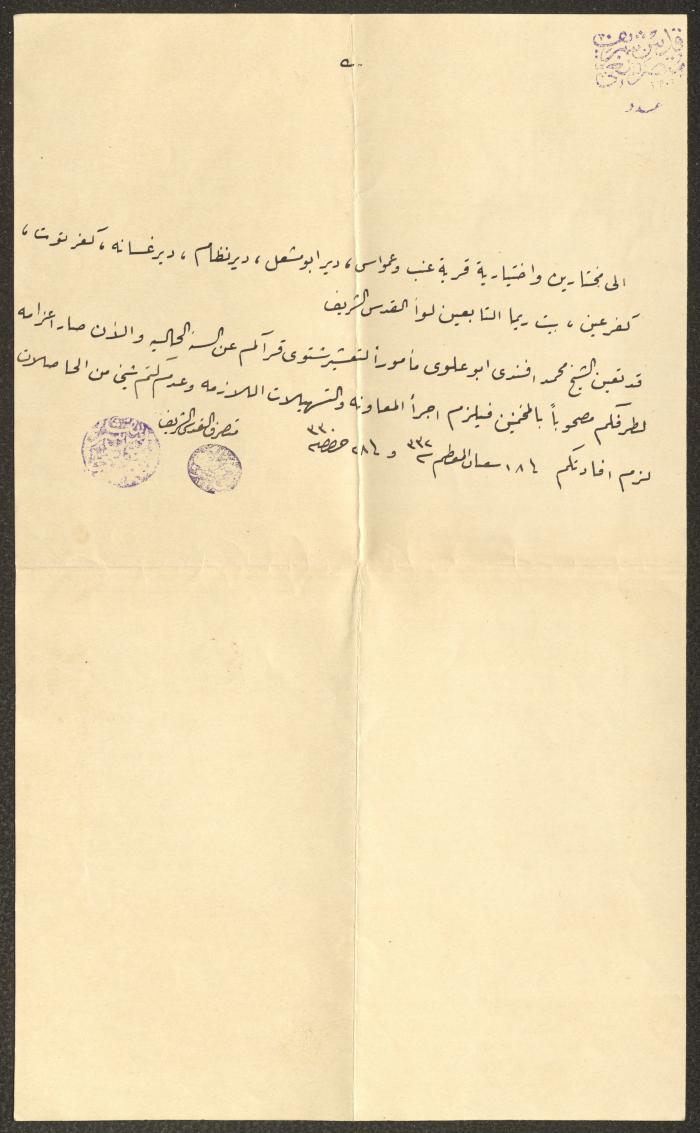 قدس شريف
متصرفلغى
عدد
الى مختارين واختيارية قرية عنب وعمواس، دير ابو مشعل، دير نظام، دير غسانه، كفر توت،
كفر عين، بيت ريما التابعين لواء القدس الشريف
قد تعين الشيخ محمد افندى ابو علوى مأموراً لتعشير شتوى قراكم عن السنه الحاليه والآن صار اعزامه
لطرفكم مصحوباً بالمخمنين فيلزم اجرأ المعاونه والتسهيلات اللازمه وعدم كتم شئ من الحاصلات
لزم افادتكم ١٨ شعبان المعظم ٣٣٢ و ٢٨ ٣٣٠
متصرف القدس الشريف